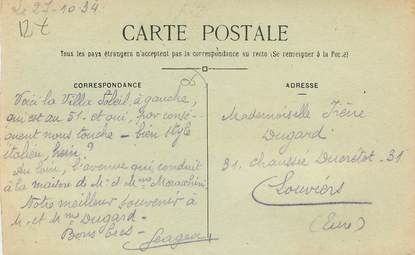 Le 27-10-34
CARTE POSTALE
Tous les pays étrangers n'acceptent pas la correspondance au recto (Se renseigner à la Poste)
CORRESPONDANCE
Voici la Villa Soleil, à gauche,
qui est au 51 - et qui, par consé-
quent nous touche - bien style
italien, hein?
Au loin, l'avenue qui conduit
à la maison de Mr et Mme
Notre meilleur souvenir à
M. et Mme Dugard -
Bons
ADRESSE
Mademoiselle Irène
Dugard
31, chaussée Ducretot - 31
Louviers
(Eure)